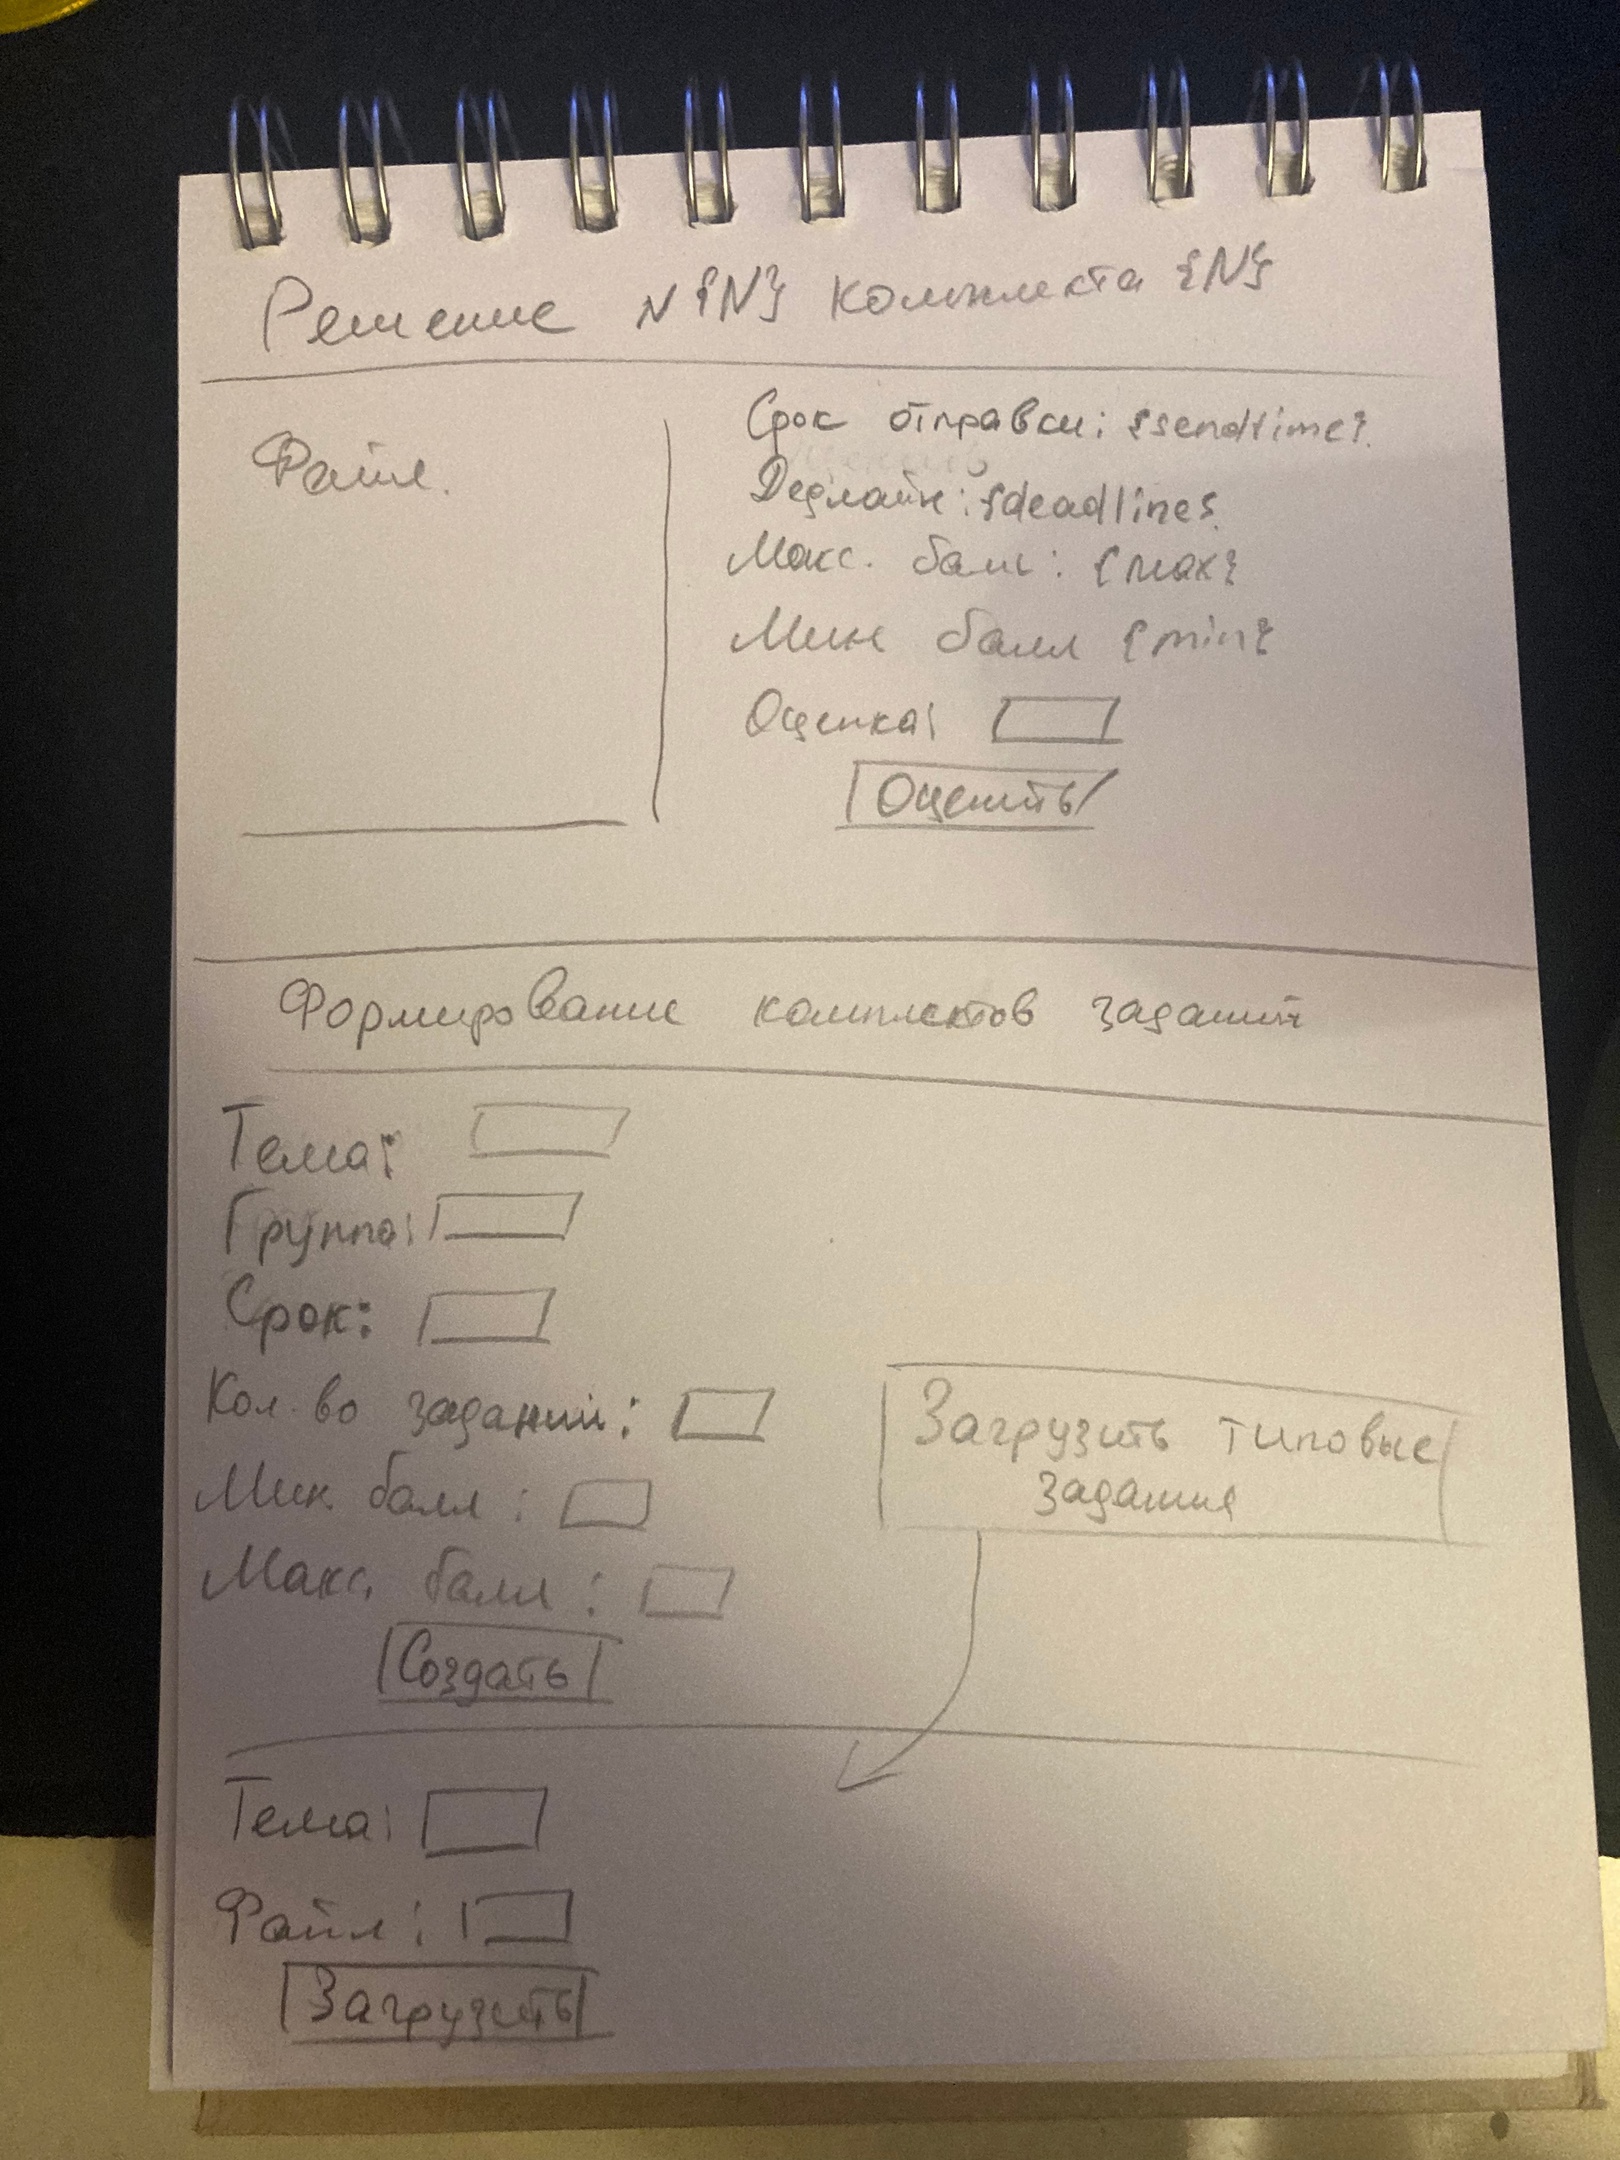 Решение N {N} комплекта {N}
Файл.
Срок отправки: {sendtime}.
Дедлайн: {deadline}.
Макс. балл: {max}
Мин балл {min}
Оценка:
Оценить
Формирование комплектов заданий
Тема:
Группа:
Срок:
Кол-во заданий:
Мин. балл:
Макс. балл:
Создать
Загрузить типовые
задания
Тема:
Файл:
Загрузить